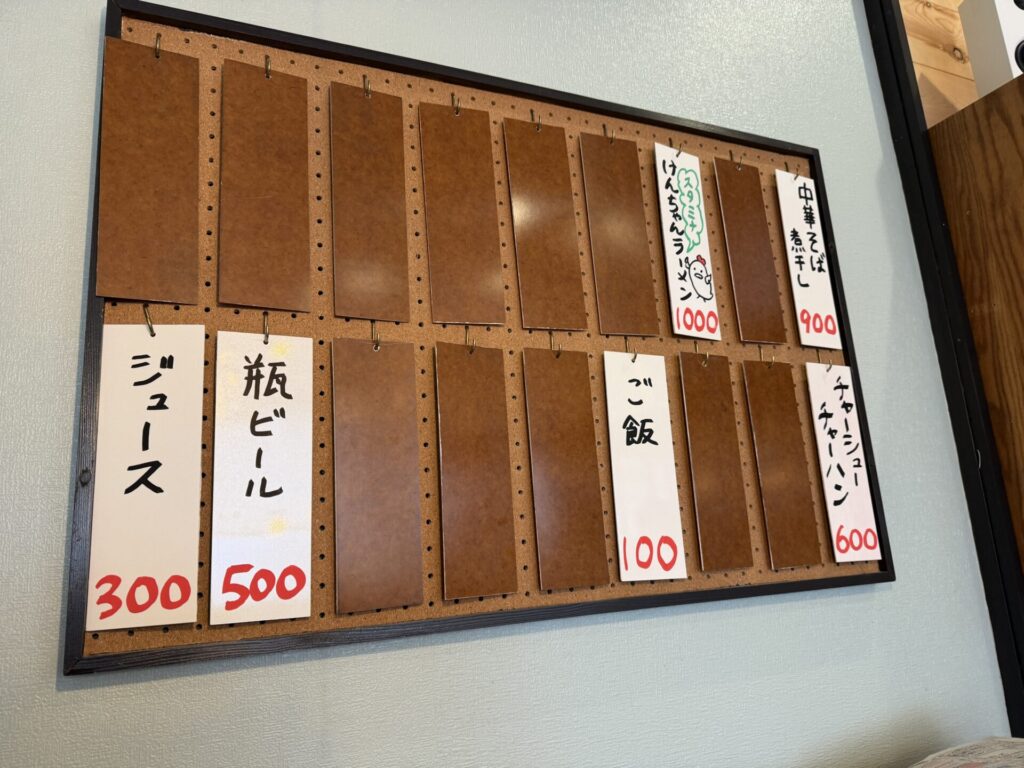 中華そば
煮干し
900
スタミナ
けんちゃんラーメン
1000
チャーシュー
チャーハン
600
ご飯
100
瓶ビール
500
ジュース
300